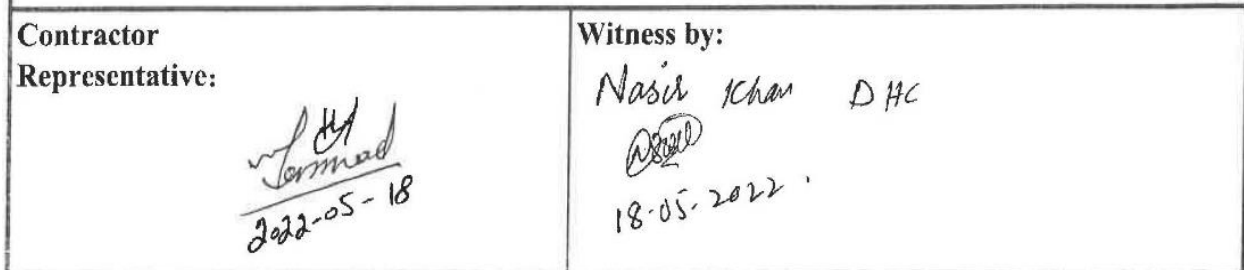 Contractor
Representative:
2022-05-18
Witness by:
Nasir Khan DHC
18-05-2022.